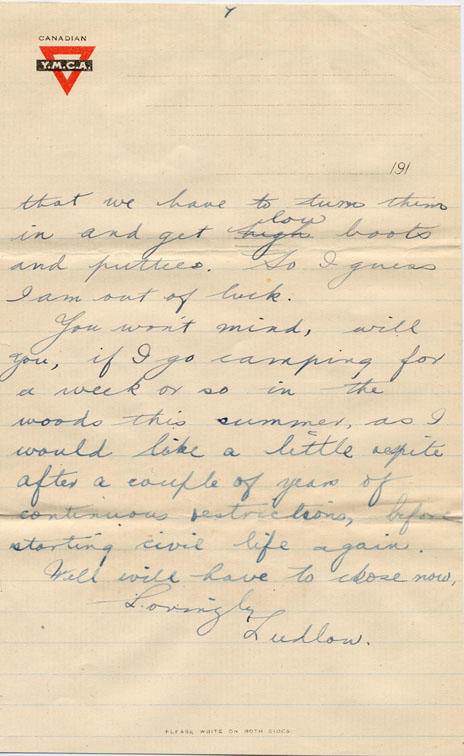 CANADIAN
Y.M.C.A.
191
that we have to turn them
low
in and get high boots
and puttees. So I guess
I am out of luck.
You won't mind, will
you, if I go camping for
a week or so in the
woods this summer, as I
would like a little respite
after a couple of years of
continuous restrictions, before
starting civil life again.
Well will have to close now,
Lovingly
Ludlow.
PLEASE WRITE ON BOTH SIDES